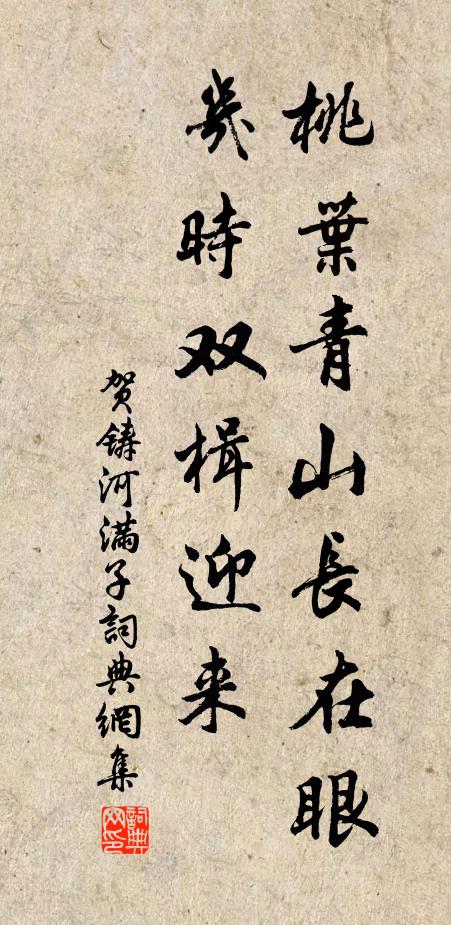 桃葉青山長在眼
幾時双楫迎来
贺鑄河滿子詞典網集
詞典网印